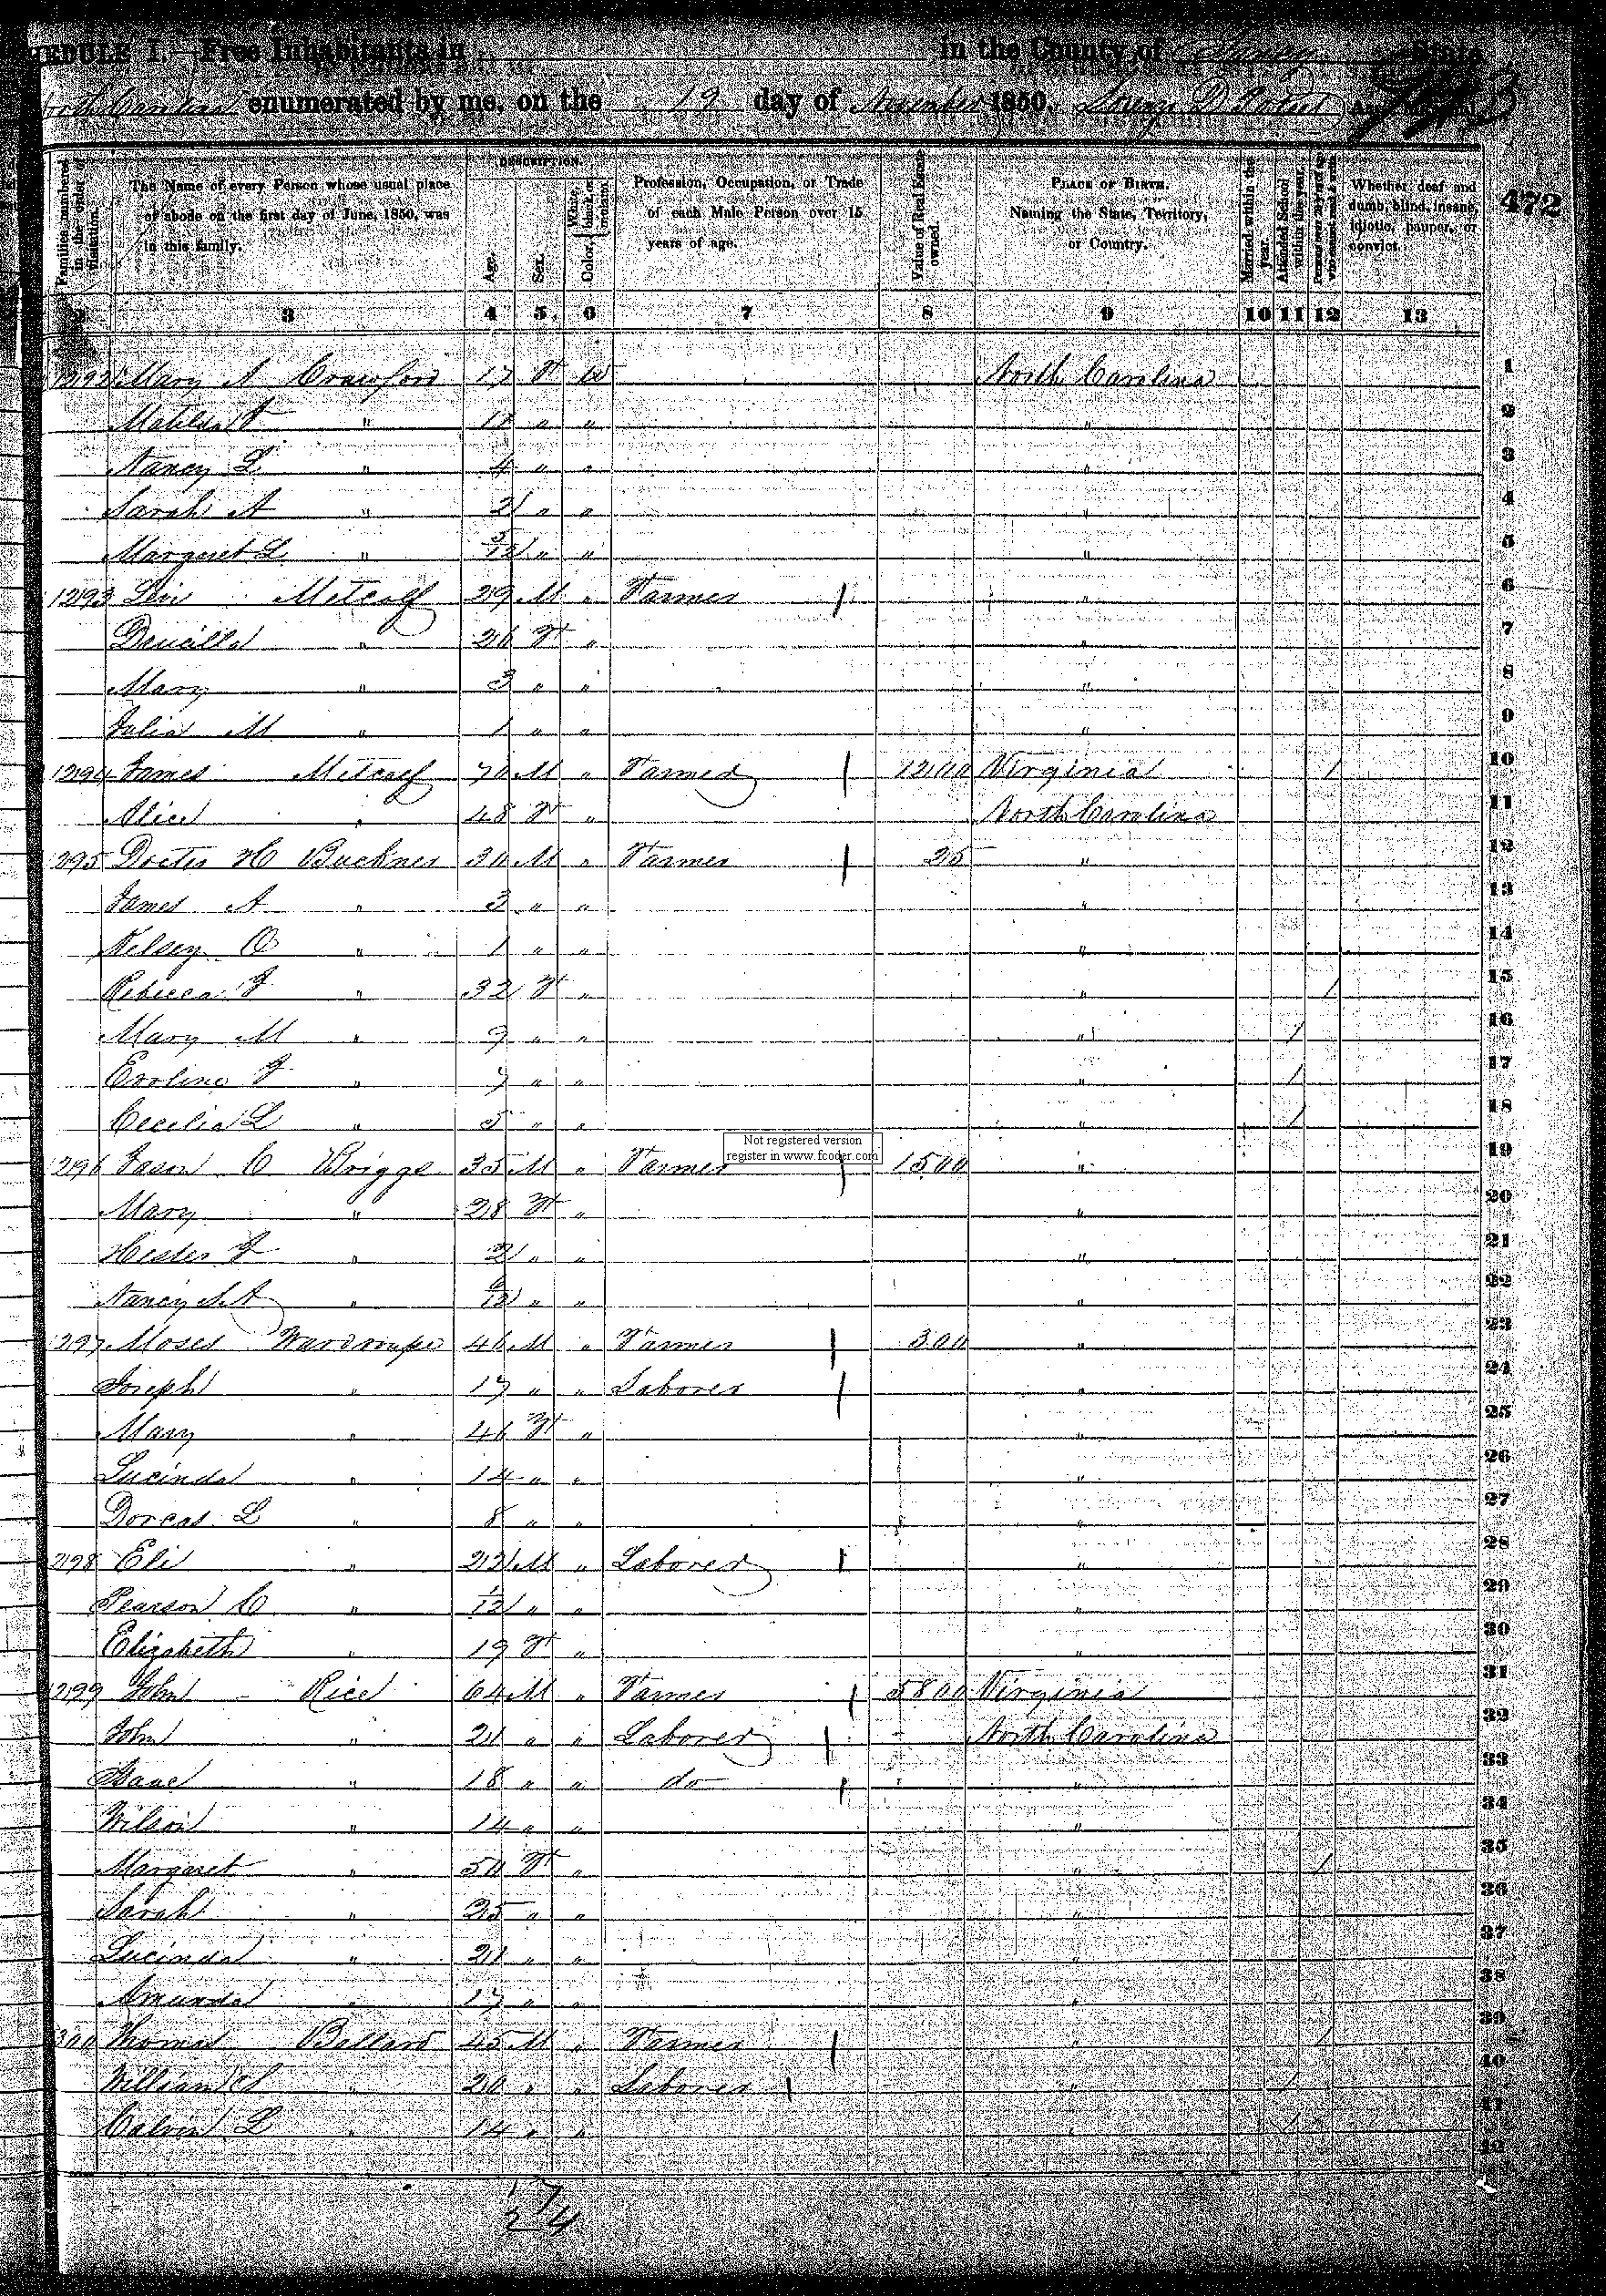 EDULE I.—Free Inhabitants in in the County of Yancey State
North Carolina enumerated by me, on the 19 day of November 1850.
Families numbered in the order of visitation.
The Name of every Person whose usual place of abode on the first day of June, 1850, was in this family.
DESCRIPTION.
Age.
Sex.
Color, White, black, or mulatto.
Profession, Occupation, or Trade of each Male Person over 15 years of age.
Value of Real Estate owned.
PLACE OF BIRTH.
Naming the State, Territory, or Country.
Married within the year.
Attended School within the year.
Whether deaf and dumb, blind, insane, idiotic, pauper, or convict.
472
2 3 4 5 6 7 8 9 10 11 12 13
1292 Mary A Crawford 17 F W North Carolina 1
Matilda " " " " 2
Nancy L " 4 " " " 3
Sarah A " 2 " " " 4
Margaret L " 5/12 " " " 5
1293 Metcalf 29 M " Farmer " 6
Drucilla " 26 F " " 7
Mary " 3 " " " 8
Julia M " 1 " " " 9
1294 James Metcalf 70 M " Farmer 1200 Virginia 1 10
Alice " 48 F " North Carolina 11
1295 Docter H Buckner 30 M " Farmer 25 " 12
James A " 3 " " " 13
Kelsey O " 1 " " " 14
Rebecca J " 32 F " " 1 15
Mary M " 9 " " " 1 16
Evoline J " 7 " " " 1 17
Cecelia L " 5 " " " 1 18
Not registered version
register in www.fcoder.com
1296 Jason C Briggs 35 M " Farmer 1500 " 19
Mary " 28 F " " 20
Hester J " 2 " " " 21
Nancy " /12 " " " 22
1297 Moses Wardroupe 46 M " Farmer 300 " 23
Joseph " 17 " " Laborer " 24
Mary " 46 F " " 25
Lucinda " 14 " " " 26
Dorcas L " 8 " " " 27
1298 Eli " 22 M " Laborer " 28
Pearson C " 1/12 " " " 29
Elizabeth " 19 F " " 30
1299 John Rice 64 M " Farmer 5800 Virginia 31
John " 21 " " Laborer North Carolina 32
Isaac " 18 " " do " 33
Wilson " 14 " " " 34
Margaret " 50 F " " 1 35
Sarah " 25 " " " 36
Lucinda " 21 " " " 37
Amanda " 17 " " " 38
300 Thomas Ballard 45 M " Farmer " 1 39
William " 20 " " Laborer " 1 40
Calvin L " 14 " " " 1 41
42